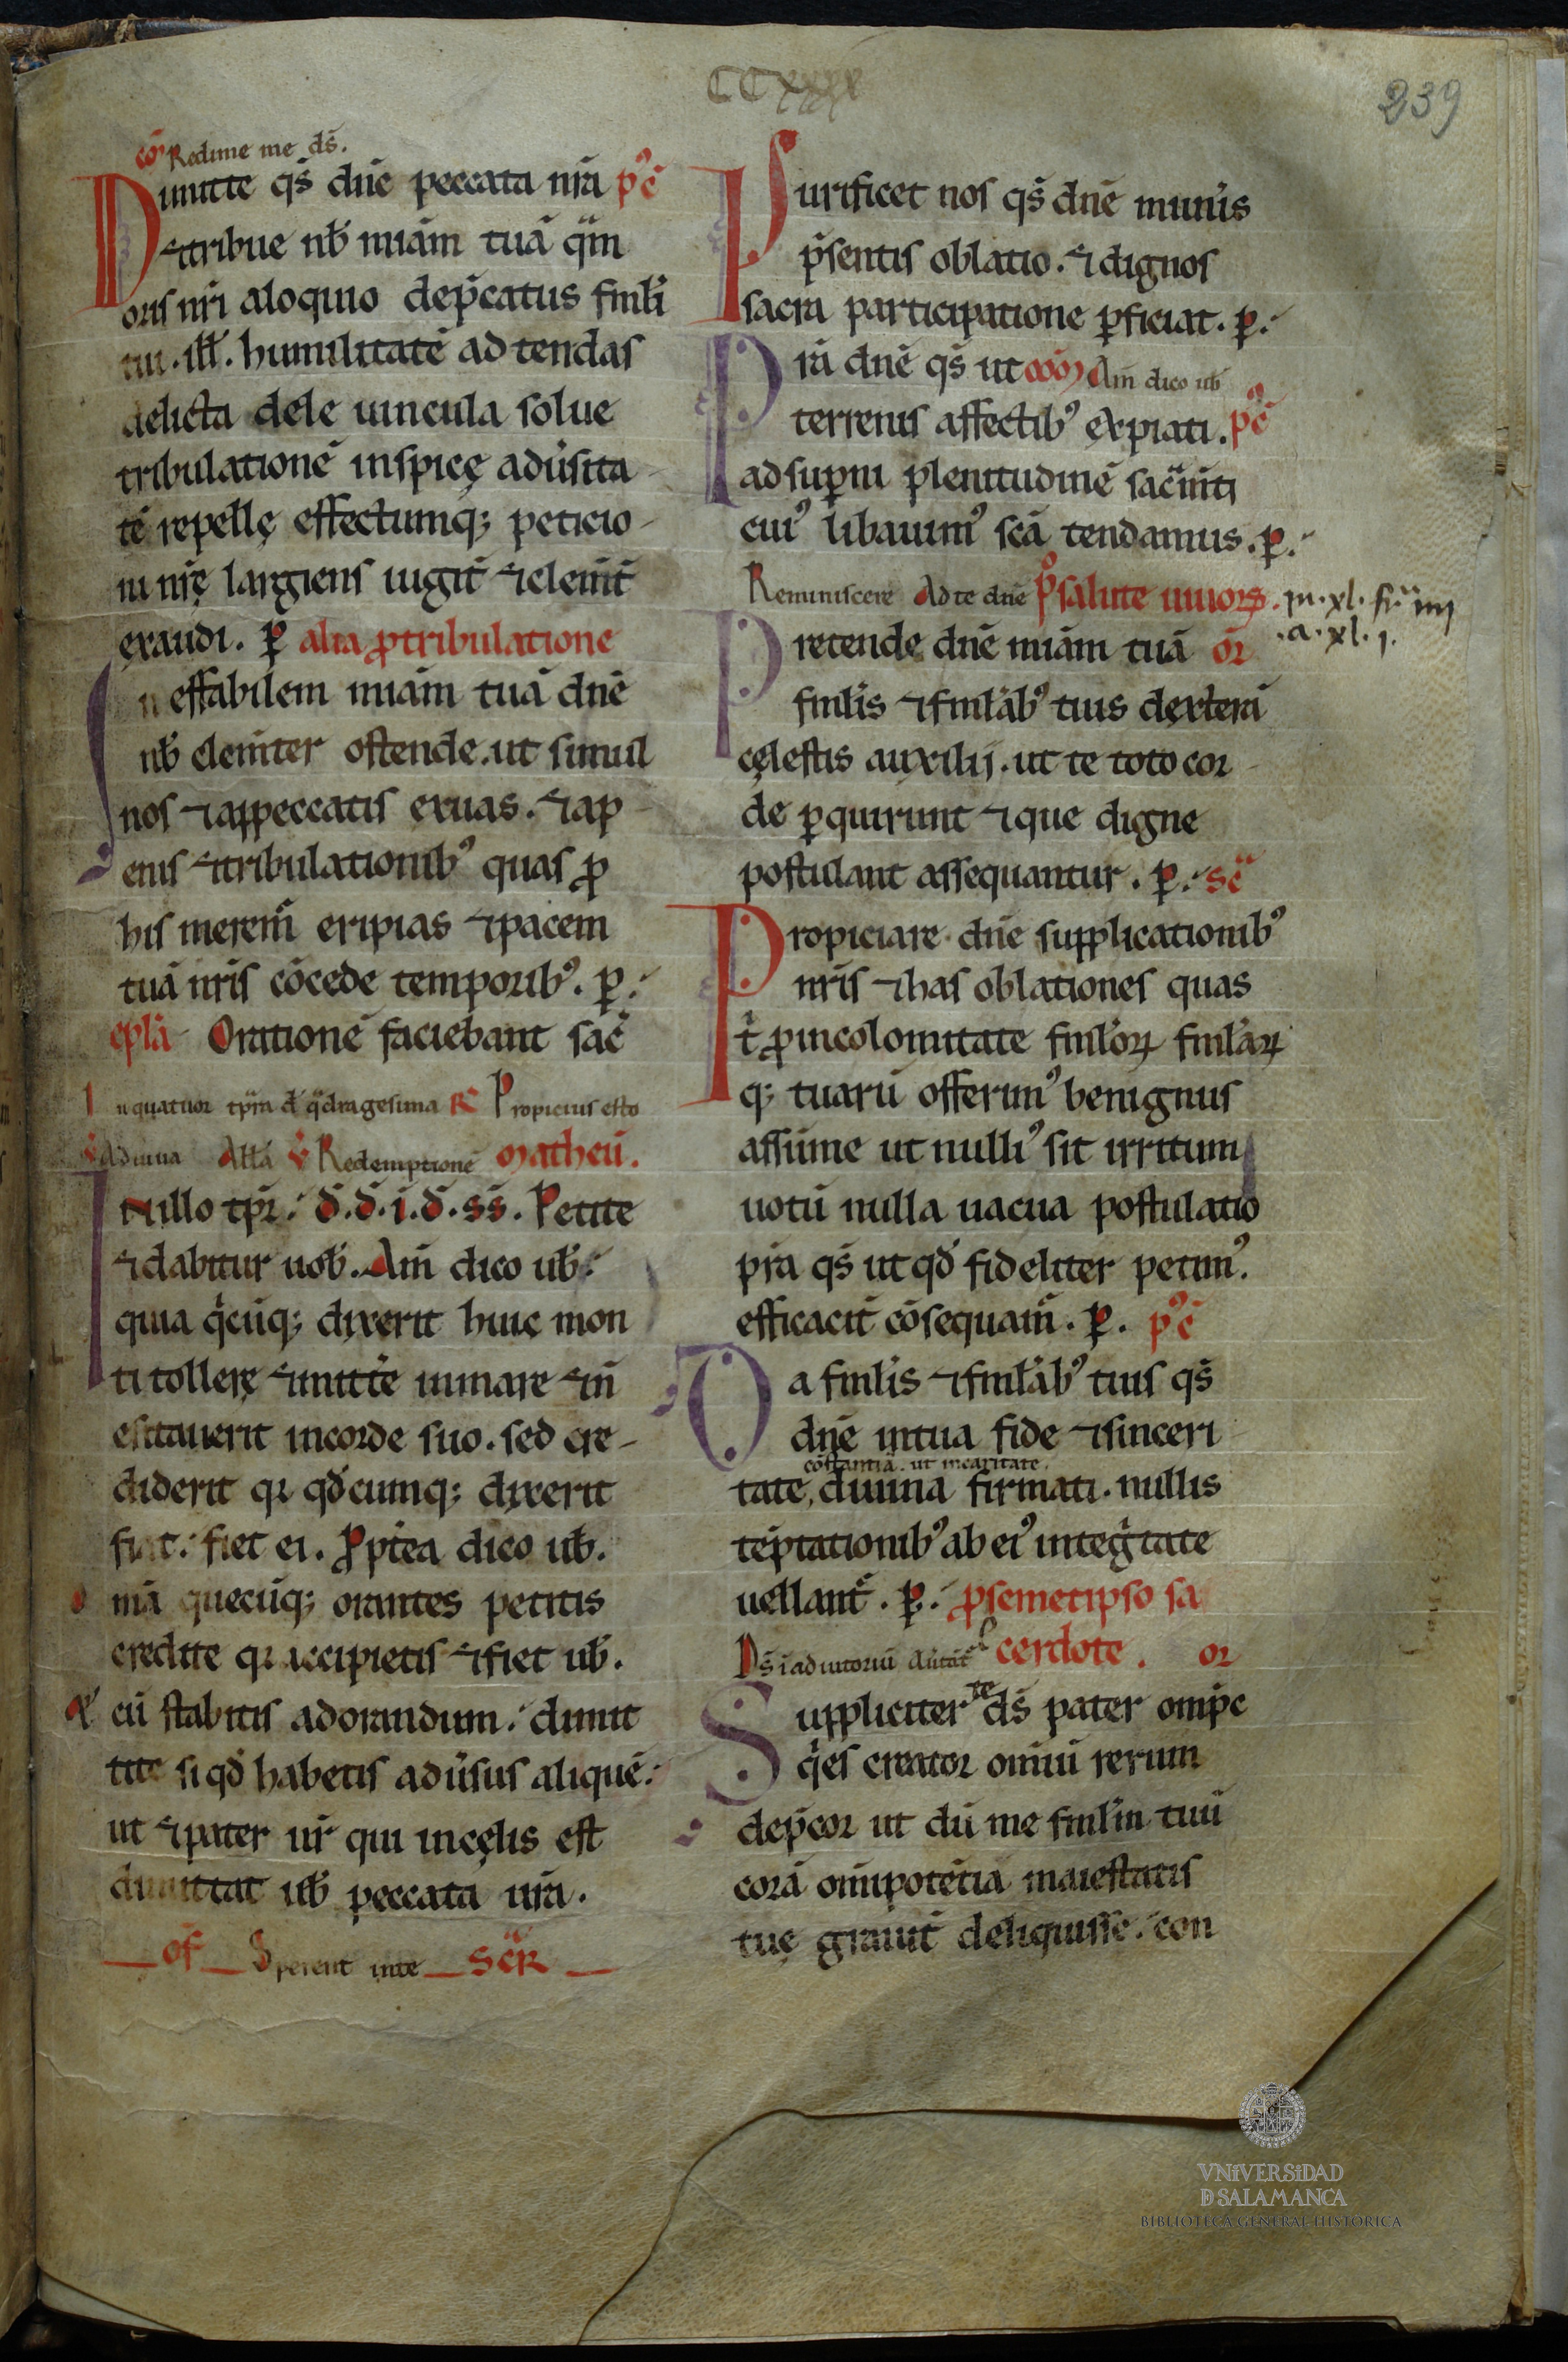 CCxxxx
239
cō Redime me ds̄.
Dimitte qs̄ dn̄e peccata nr̄a p᷒c̄
⁊tribue nb̄ miām tuā q̄m
oris nr̄i aloquio dep̄catus fml̄i
tui . ill̄ . humilitatē ad tendas
delicta dele uincula solue
tribulationē inspicę aduersita-
tē repellę effectumq; peticio-
ni nr̄ę largiens iugit̄ ⁊clem̄t̄
exaudi . ꝑ alia ꝓtribulatione
Ineffabilem miām tuā dn̄e
nb̄ clem̄ter ostende . ut simul
nos ⁊appeccatis exuas . ⁊ap
enis ⁊tribulationib᷒ quas ꝓ
his merem̄ eripias ⁊pacem
tuā nr̄is cōcede temporib᷒ . ꝑ.
epl̄a Orationē faciebant sac̄
In quatuor tp̄ra d̄ q̄dragesima R̄ Propicius esto
v̄ Adiuua All̄a v̄ Redemptionē Matheū .
In illo tp̄r . d̄.d̄.i.d̄.ss̄. Petite
⁊dabitur uob̄ . Am̄ dico ub̄ .
quia q̄cūq; dixerit huic mon
ti tollerę ⁊mitte inmare ⁊n̄
esitauerit incorde suo . sed cre-
diderit qi qd̄cumq; dixerit
fiat . fiet ei . Ꝓpt̄ea dico ub̄ .
om̄ia quecūq; orantes petitis
credite qi accipietis ⁊fiet ub̄ .
⁊ cū stabitis adorandum . dimit
tite siqd̄ habetis aduersus aliquē .
ut ⁊pater ur̄ qui incęlis est
dimittat ub̄ peccata ur̄a .
of Sperent inte sec̄r̄
Purificet nos qs̄ dn̄e muneris
p̄sentis oblatio . ⁊dignos
sacra participatione ꝑficiat . ꝑ.
Pr̄a dn̄e qs̄ ut com̄ Am̄ dico ub̄
terrenis affectib᷒ expiati . p᷒c̄
adsuꝑni plenitudinē sac̄m̄ti
cui᷒ libauim᷒ scā tendamus . ꝑ.
Reminiscere Ad te dn̄e ꝓsalute uiuorꝝ . in . xl . fr̄a iiii
.a . xl . i .
Pretende dn̄e miām tuā or̄
fml̄is ⁊fml̄ab᷒ tuis dexterā
cęlestis auxilij . ut te toto cor-
de ꝑquirunt ⁊que digne
postulant assequantur . ꝑ. sc̄
Propiciare dn̄e supplicationib᷒
nr̄is ⁊has oblationes quas
t̄ ꝓincolomitate fml̄oꝝ fml̄aꝝ
q; tuarū offerim᷒ benignus
assūme ut nulli᷒ sit irritum
uotū nulla uacua postulatio
pr̄a qs̄ ut qd̄ fideliter petim᷒ .
efficacit̄ cōsequam̄ . ꝑ. p᷒c̄
Da fml̄is ⁊fml̄ab᷒ tuis qs̄
dn̄e intua fide ⁊sinceri
cōstantiā . ut incaritate .
tate, diuina firmati . nullis
tēptationib᷒ ab ei᷒ inteḡtate
uellant̄ . ꝑ. ꝓsemetipso sa
Ds̄ ī adiutoriū Auertāt̄ cerdote . or
Suppliciter te ds̄ pater omp̄c
q̄ es creator omīū rerum
dep̄cor ut dū me fml̄m tuū
corā omīpotētia maiestatis
tuę grauit̄ deliquisse . con
VNiVERSiDAD
D SALAMANCA
BIBLIOTECA GENERAL HISTÓRICA